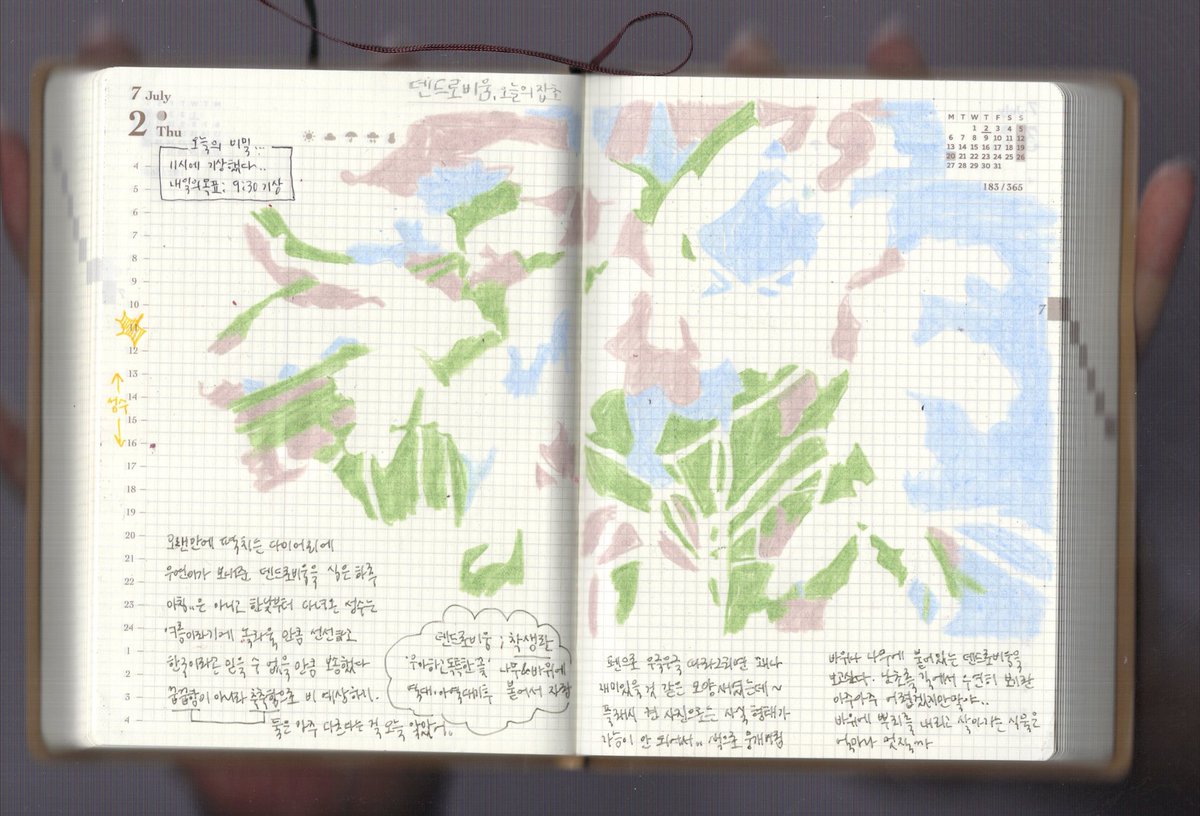 7 July
2 Thu
덴드로비움, 오늘의 잡초
오늘의 비밀...
11시에 기상했다..
내일의목표: 9:30 기상
4
5
6
7
8
9
10
11
12
13
성수
14
15
16
17
18
19
20
21
22
23
24
1
2
3
4
오랜만에 펼치는 다이어리에
우연이가 보내준 덴드로비움을 심은 하루
아침..은 아니고 한낮부터 다녀온 성수는
여름이라기에 놀라울 만큼 선선했고
한국이라고 믿을 수 없을 만큼 보송했다
꿉꿉함이 아니라 축축함으로 비 예상하기.
둘은 아주 다르다는 걸 오늘 알았어.
덴드로비움 ; 착생란
우아하고 독특한 꽃
나무&바위에
열대·아열대기후
붙어서 자람
펜으로 우글우글 따라그리면 꽤나
재미있을 것 같은 모양새였는데~
플래시 켠 사진으로는 사실 형태가
가늠이 안 되어서.. 색으로 뭉개버림
바위나 나무에 붙어있는 덴드로비움을
보고싶다. 난초촌 각에서 우연히 보기란
아주아주 어렵겠지만말야..
바위에 뿌리를 내리고 살아가는 식물은
얼마나 멋질까
M T W T F S S
1 2 3 4 5
6 7 8 9 10 11 12
13 14 15 16 17 18 19
20 21 22 23 24 25 26
27 28 29 30 31
183 / 365
7